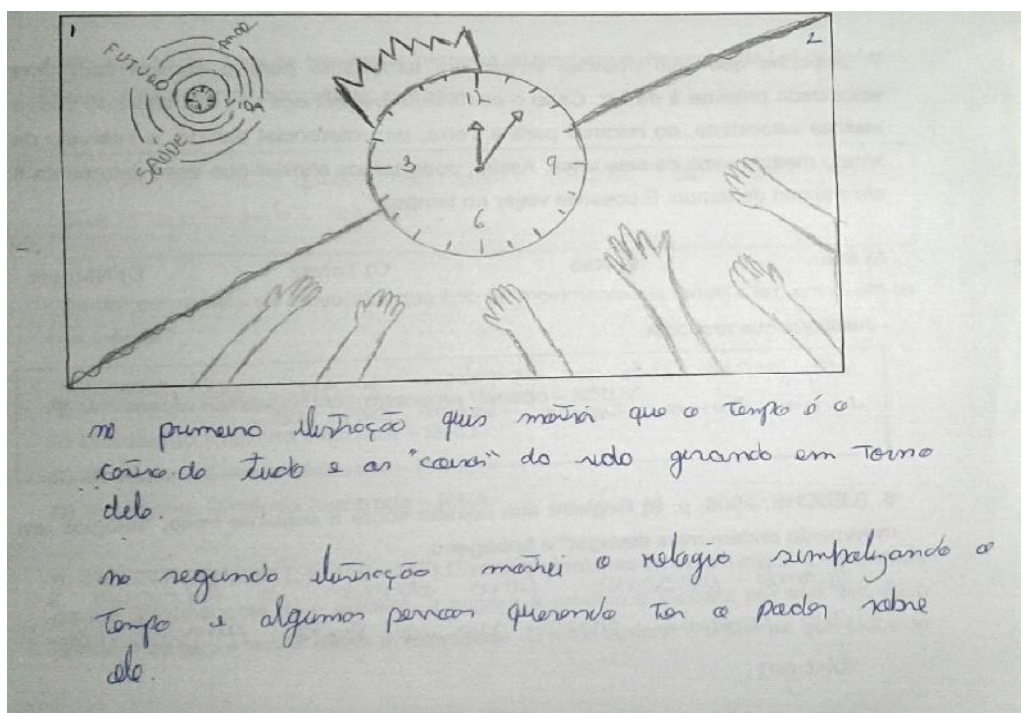 1
2
FUTURO
AMOR
VIDA
SAÚDE
12
3
9
6
na primeira ilustração quis mostrar que o tempo é o
centro de tudo e as "coisas" da vida girando em torno
dele.
na segunda ilustração mostrei o relógio simbolizando o
tempo e algumas pessoas querendo ter o poder sobre
ele.